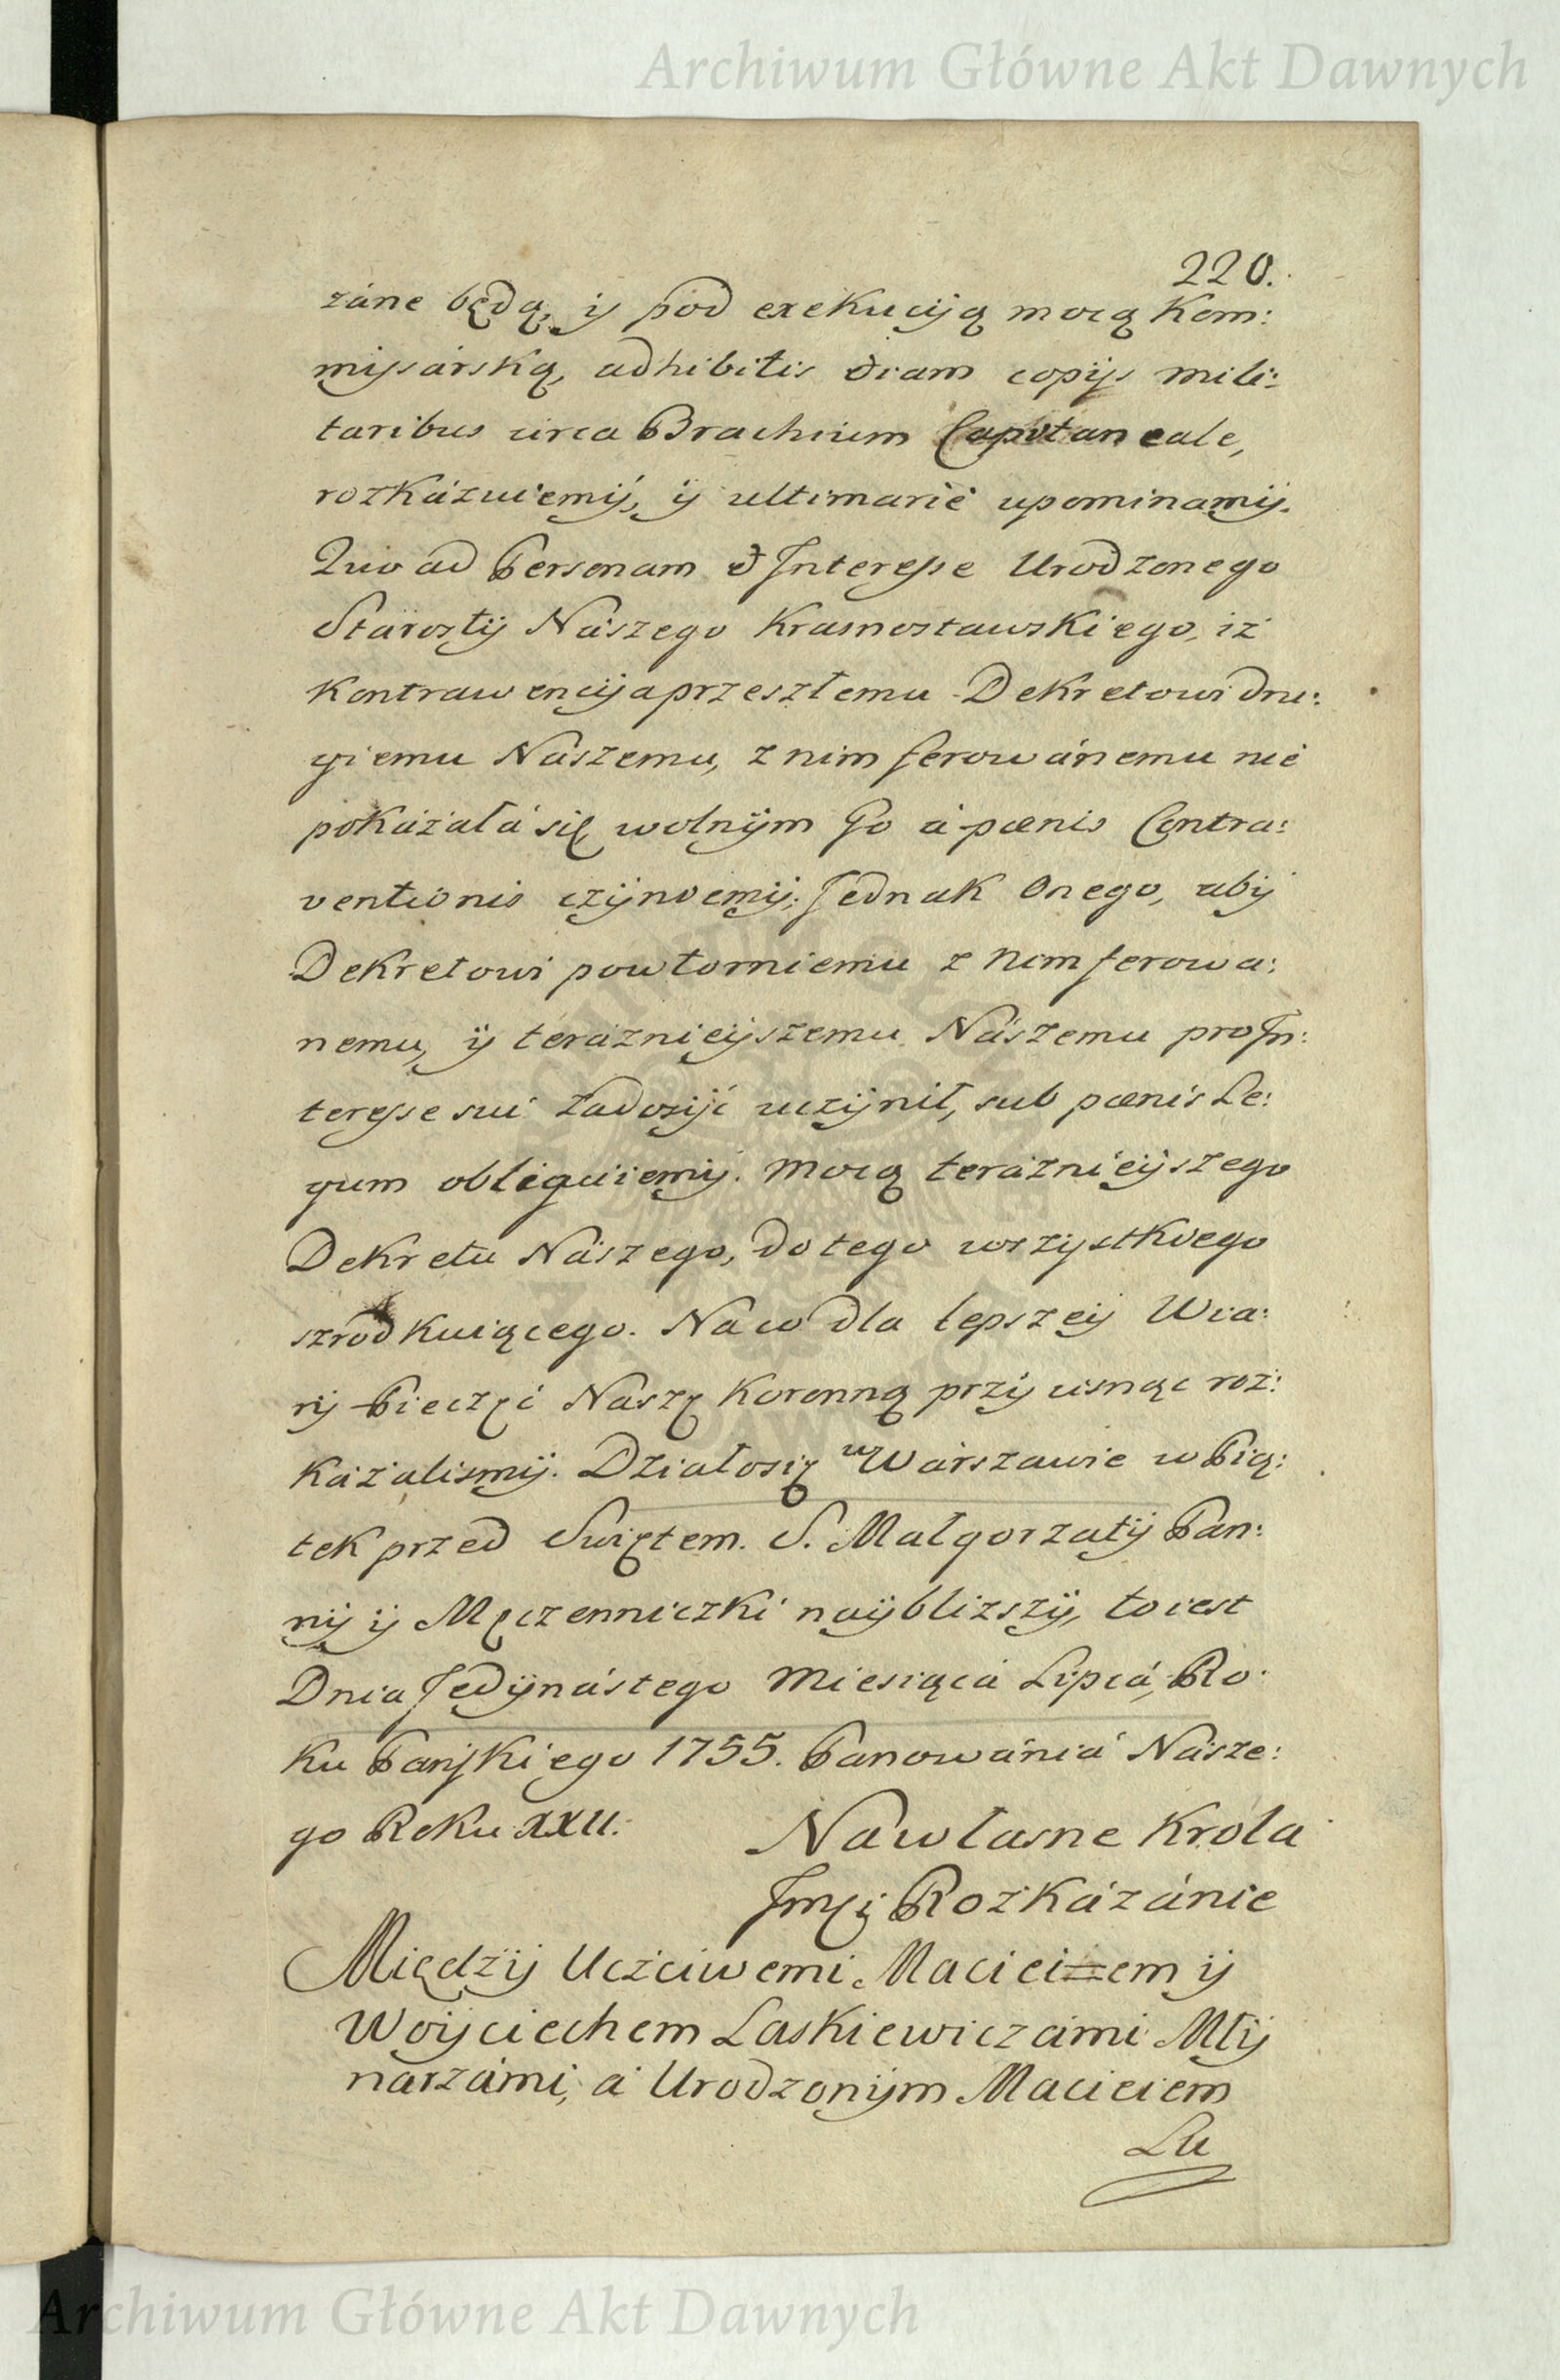 Archiwum Główne Akt Dawnych
220.
záne będą, ÿ pod exekucÿą mocą Kom:
missárską, adhibitis etiam copijs mili:
taribus circa Brachium Capitaneale,
rozkázuiemÿ, ÿ ultimarie upominamÿ.
Quo ad Personam et Interesse Urodzonego
Starostÿ Nászego Krasnostawskiego, iż
Kontrawencÿa przeszłemu Dekretowi dru:
giemu Nászemu, z nim ferowánemu nie
pokázała się, wolnÿm Go á pœnis Contra:
ventionis czÿniemÿ; Jednak Onego, abÿ
Dekretowi powtorniemu z Nim ferowa:
nemu, ÿ teráznieÿszemu Nászemu pro In:
teresse sui zadosÿć uczÿnił, sub pœnis Le:
gum obliguiemÿ. Mocą teráznieÿszego
Dekretu Nászego, do tego wszÿstkiego
szrodkuiącego. Na co dla lepszeÿ Wia:
rÿ Pieczęć Naszę Koronną przÿcisnąć roz:
kazalismÿ. Działo się w Wárszawie w Pią:
tek przed Swiętem S. Małgorzatÿ Pan:
nÿ ÿ Męczenniczki naÿbliższÿ, to iest
Dnia Jedÿnástego Miesiąca Lipcá, Ro:
ku Pańskiego 1755. Panowánia Násze:
go Roku XXII.
Na własne Krola
Jmci Rozkázánie
Międzÿ Uczciwemi Maciei=em ÿ
Woÿciechem Laskiewiczámi Młÿ
narzámi, á Urodzonÿm Macieiem
Lu
Archiwum Główne Akt Dawnych